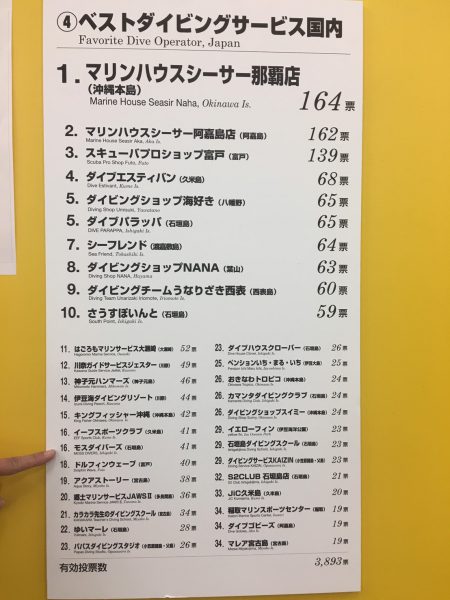 ④ベストダイビングサービス国内
Favorite Dive Operator, Japan
1. マリンハウスシーサー那覇店
(沖縄本島)
Marine House Seasir Naha, Okinawa Is.
164票
2. マリンハウスシーサー阿嘉島店(阿嘉島) 162票
Marine House Seasir Aka, Aka Is.
3. スキューバプロショップ富戸(富戸) 139票
Scuba Pro Shop Futo, Futo
4. ダイブエスティバン(久米島) 68票
Dive Estivant, Kume Is.
5. ダイビングショップ海好き(八幡野) 65票
Diving Shop Umisuki, Yawatano
5. ダイブパラッパ(石垣島) 65票
DIVE PARAPPA, Ishigaki Is.
7. シーフレンド(渡嘉敷島) 64票
Sea Friend, Tokashiki Is.
8. ダイビングショップNANA(葉山) 63票
Diving Shop NANA, Hayama
9. ダイビングチームうなりざき西表(西表島) 60票
Diving Team Unarizaki Iriomote, Iriomote Is.
10. さうすぽいんと(石垣島) 59票
South Point, Ishigaki Is.
11. はごろもマリンサービス大瀬崎(大瀬崎) 52票
12. 川奈ガイドサービスジェスター(川奈) 49票
13. 神子元ハンマーズ(神子元島) 46票
14. 伊豆海ダイビングリゾート(川奈) 44票
15. キングフィッシャー沖縄(沖縄本島) 42票
16. イーフスポーツクラブ(久米島) 41票
16. モスダイバーズ(石垣島) 41票
18. ドルフィンウェーブ(富戸) 40票
19. アクアストーリー(宮古島) 38票
20. 郷土マリンサービスJAWSⅡ 36票
21. カラカラ先生のダイビングスクール(宮古島) 34票
22. ゆいマーレ(石垣島) 28票
23. パパスダイビングスタジオ 26票
23. ダイブハウスクローバー(石垣島) 26票
25. ペンションいち・まる・いち(伊豆大島) 25票
26. おきなわトロピコ(沖縄本島) 24票
26. カマンタダイビングクラブ(石垣島) 24票
26. ダイビングショップスイミー(沖縄本島) 24票
29. イエローフィン(伊豆海洋公園) 23票
29. 石垣島ダイビングスクール(石垣島) 23票
29. ダイビングサービスKAIZIN 23票
32. S2CLUB 石垣島店(石垣島) 21票
33. JiC久米島(久米島) 20票
34. 稲取マリンスポーツセンター(稲取) 19票
34. ダイブゴビーズ 19票
34. マレア宮古島(宮古島) 19票
有効投票数 3,893票